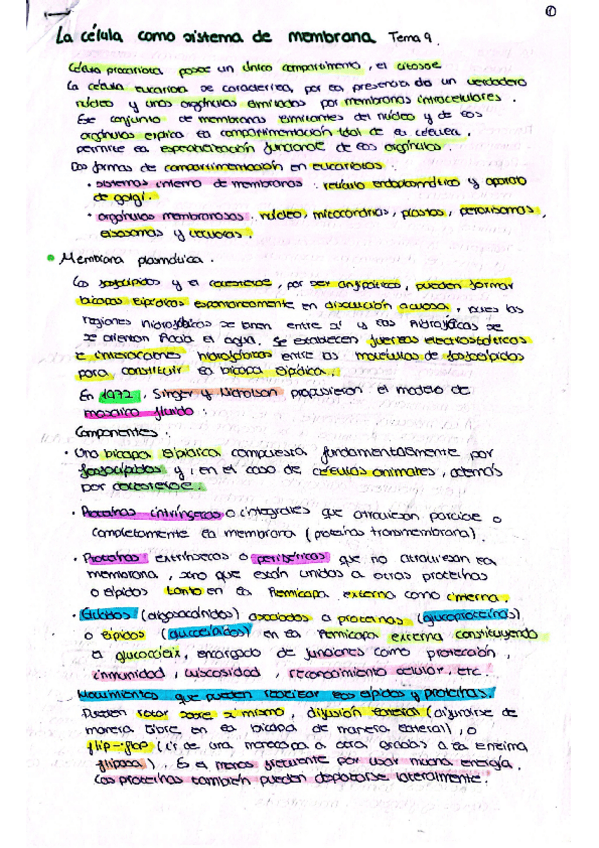 ①
La célula como sistema de membrana Tema 9.
Célula procariota, posee un único compartimento, el citosol
La célula eucariota se caracteriza, por la presencia de un verdadero
núcleo y unos orgánulos limitados por membranas intracelulares.
Ese conjunto de membranas limitantes del núcleo y de los
orgánulos explica la compartimentación total de la célula.
permite la especialización funcional de los orgánulos.
Dos formas de compartimentación en eucariotas:
• sistemas interno de membranas : retículo endoplasmático y aparato
de golgi.
• orgánulos membranosos: núcleo, mitocondrias, plastos, peroxisomas,
lisosomas y vacuolas.
• Membrana plasmática.
Los fosfolípidos y el colesterol, por ser anfipáticos, pueden formar
bicapas lipídicas espontáneamente en disolución acuosa, pues las
regiones hidrofóbicas se unen entre sí y las hidrofílicas se
se orientan hacia el agua. Se establecen fuerzas electrostáticas
e interacciones hidrofóbicas entre las moléculas de fosfolípidos
para constituir la bicapa lipídica.
En 1972, Singer y Nicholson propusieron el modelo de
mosaico fluido :
Componentes.
• Una bicapa lipídica compuesta fundamentalmente por
fosfolípidos y, en el caso de células animales, además
por colesterol.
• Proteínas intrínsecas o integrales que atraviesan parcial o
completamente la membrana (proteínas transmembrana).
• Proteínas extrínsecas o periféricas que no atraviesan la
membrana, sino que están unidas a otras proteínas
o lípidos tanto en la hemicapa externa como interna.
• Glúcidos (oligosacáridos) asociados a proteínas (glucoproteínas)
o lípidos (glucolípidos) en la hemicapa externa constituyendo
el glucocálix, encargado de funciones como protección,
inmunidad, viscosidad, reconocimiento celular, etc.
Movimientos que pueden realizar los lípidos y proteínas.
Pueden rotar sobre sí mismo, difusión lateral (difundirse de
manera libre en la bicapa de manera lateral), o
flip-flop (ir de una monocapa a otra gracias a la enzima
flipasa). Es el menos frecuente por usar mucha energía.
Las proteínas también pueden desplazarse lateralmente.